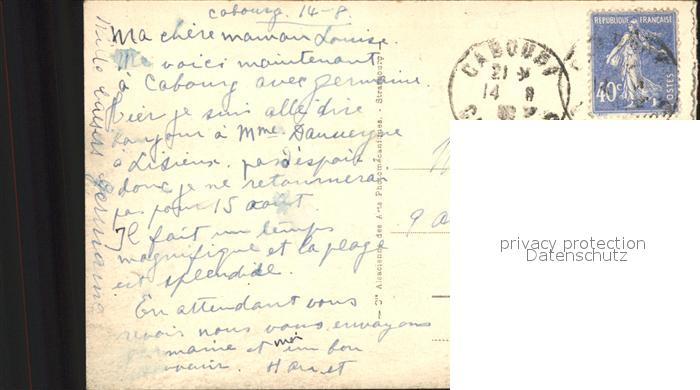 Cabourg 14-8
Ma chère maman Louise.
Me voici maintenant
à Cabourg avec Germaine.
Hier je suis allé dire
bonjour à Mme
à Lisieux. pas d'espoir
donc je ne retournerai
pas pour 15 août
Il fait un temps
magnifique et la plage
est splendide.
En attendant vous
revoir nous vous envoyons
et moi un bon
Mille baisers Germaine
Cie Alsacienne des Arts Photomécaniques. - Strasbourg
CABOURG
21
14 8
REPUBLIQUE FRANÇAISE
40c
POSTES
privacy protection
Datenschutz